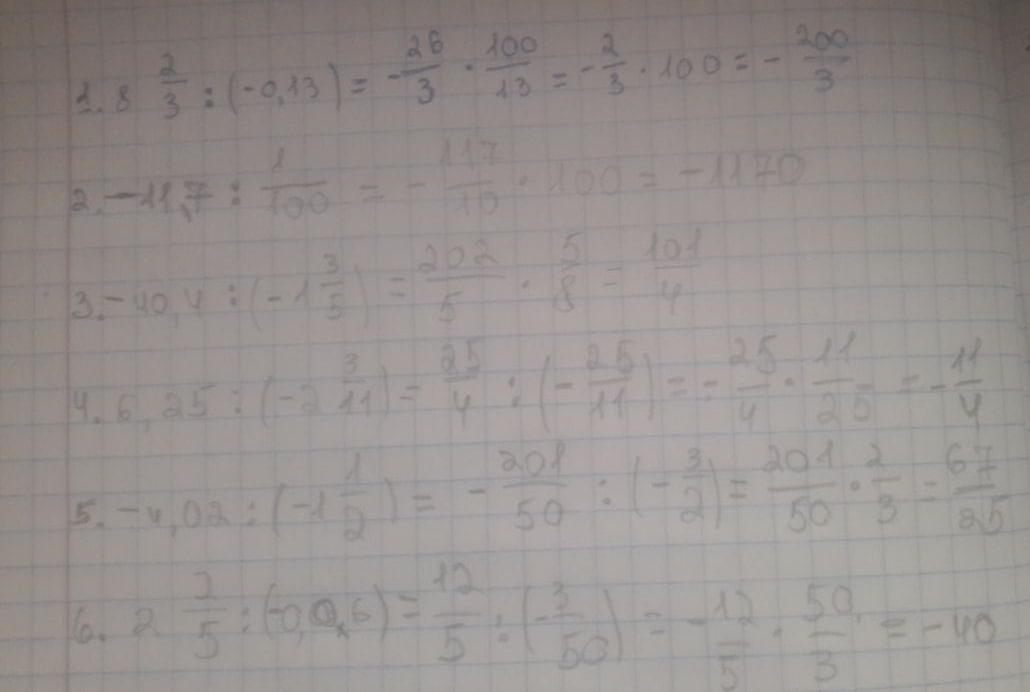 1. 8 2/3 : (-0,13) = - 26/3 · 100/13 = - 2/3 · 100 = - 200/3
2. -11,7 : 1/100 = - 117/10 · 100 = -1170
3. -40,4 : (-1 3/5) = 202/5 · 5/8 = 101/4
4. 6,25 : (-2 3/11) = 25/4 : (- 25/11) = - 25/4 · 11/25 = - 11/4
5. -4,02 : (-1 1/2) = - 201/50 : (- 3/2) = 201/50 · 2/3 = 67/25
6. 2 2/5 : (-0,06) = 12/5 : (- 3/50) = - 12/5 · 50/3 = -40